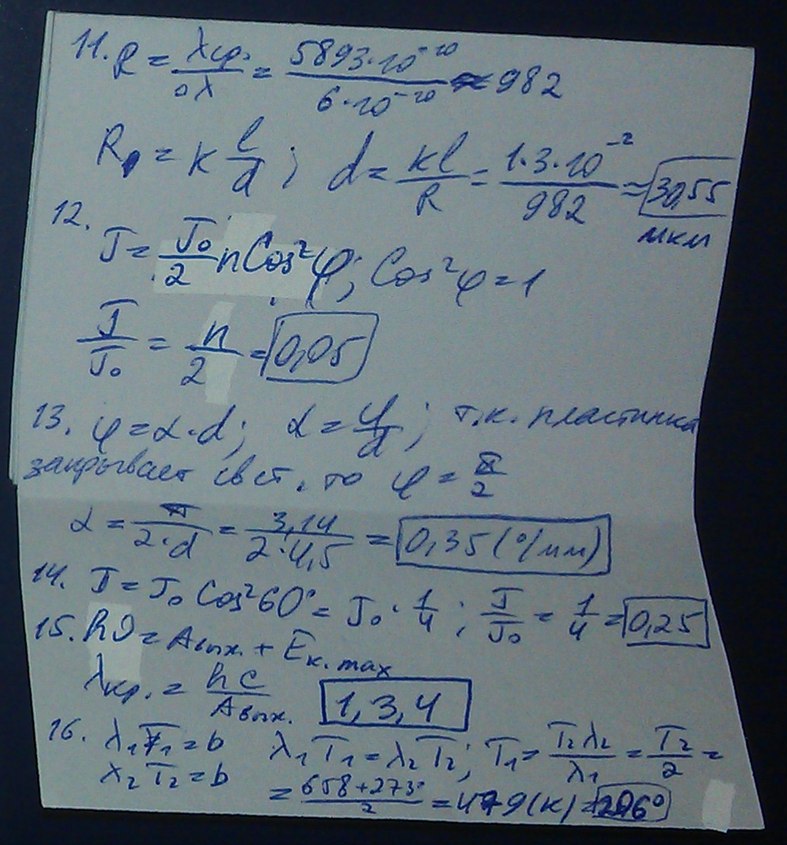 11. R = λср. / Δλ = 5893·10⁻¹⁰ / 6·10⁻¹⁰ ≈ 982
R = k l/d ; d = kl/R = 1·3·10⁻² / 982 = 30,55 мкм
12. J = J₀/2 n Cos²φ; Cos²φ = 1
J/J₀ = n/2 = 0,05
13. φ = α·d; α = φ/d ; т.к. пластинка
закрывает свет, то φ = π/2
α = π / 2·d = 3,14 / 2·4,5 = 0,35 (°/мм)
14. J = J₀ Cos²60° = J₀ · 1/4 ; J/J₀ = 1/4 = 0,25
15. hϑ = Aвых. + Eк. max
λкр. = hc / Aвых. 1, 3, 4
16. λ₁T₁ = b λ₁T₁ = λ₂T₂; T₁ = T₂λ₂ / λ₁ = T₂/2 =
λ₂T₂ = b = 658+273° / 2 = 479 (К) =